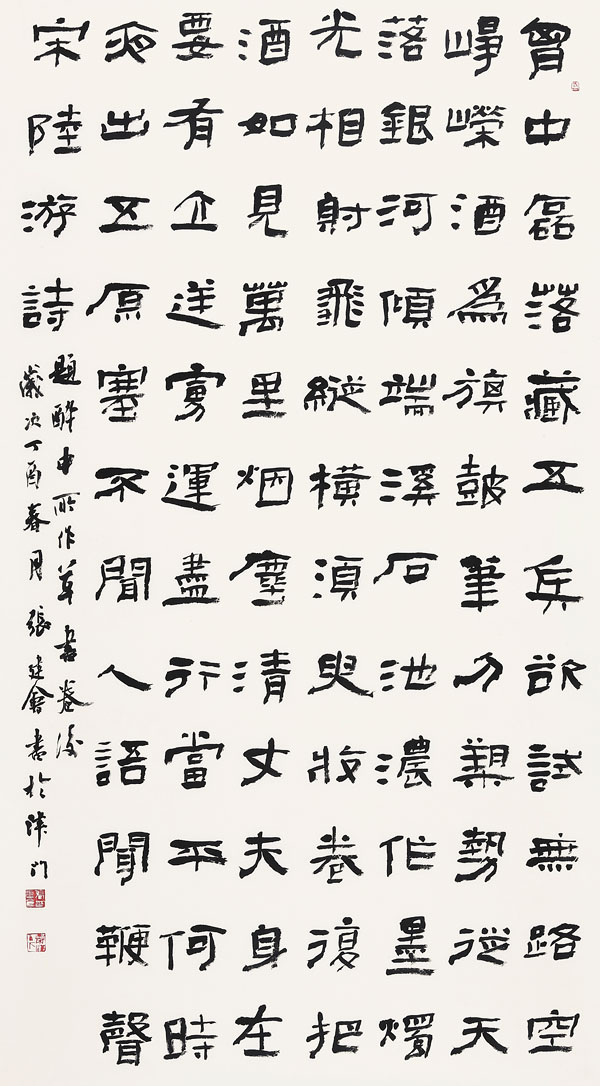 胷中磊落藏五兵欲試無路空
崢嶸酒為旗鼓筆刀槊勢從天
落銀河傾端溪石池濃作墨燭
光相射飛縱橫須臾收卷復把
酒如見萬里烟塵清丈夫身在
要有立逆虜運盡行當平何時
夜出五原塞不聞人語聞鞭聲
宋陸游詩
題醉中所作草書卷後
歲次丁酉春月張建會書於津門